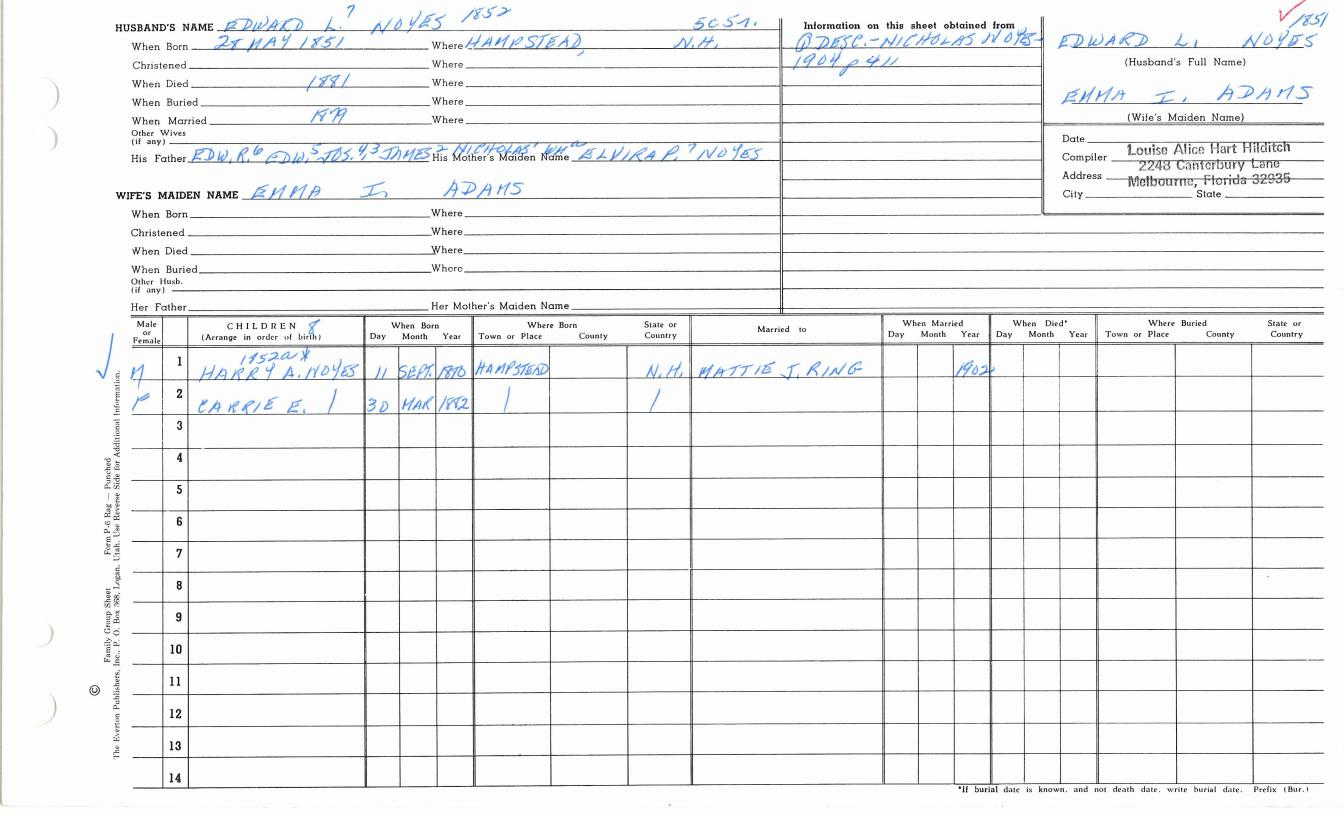 HUSBAND'S NAME EDWARD L.7 NOYES 1852 5C51.
When Born 28 MAY 1851 Where HAMPSTEAD, N.H.
Christened Where
When Died 1881 Where
When Buried Where
When Married 1879 Where
Other Wives
(if any)
His Father EDW. R.6 EDW.5 JOS.4,3 JAMES2 NICHOLAS1 WMa His Mother's Maiden Name ELVIRA P.7 NOYES
WIFE'S MAIDEN NAME EMMA I. ADAMS
When Born Where
Christened Where
When Died Where
When Buried Where
Other Husb.
(if any)
Her Father Her Mother's Maiden Name
Information on this sheet obtained from
DESC.-NICHOLAS NOYES
1904 p 411
1851
EDWARD L. NOYES
(Husband's Full Name)
EMMA I. ADAMS
(Wife's Maiden Name)
Date
Compiler Louise Alice Hart Hilditch
Address 2248 Canterbury Lane
Melbourne, Florida 32935
City State
Male or Female CHILDREN 8 (Arrange in order of birth) When Born Day Month Year Where Born Town or Place County State or Country Married to When Married Day Month Year When Died* Day Month Year Where Buried Town or Place County State or Country
1 1852a*
M HARRY A. NOYES 11 SEPT. 1870 HAMPSTEAD N.H. MATTIE J. RING 1902
2 F CARRIE E. | 30 MAR 1882 | |
3
4
5
6
7
8
9
10
11
12
13
14
*If burial date is known, and not death date, write burial date. Prefix (Bur.)
Family Group Sheet Form P-6 Rag — Punched
© The Everton Publishers, Inc., P. O. Box 368, Logan, Utah. Use Reverse Side for Additional Information.